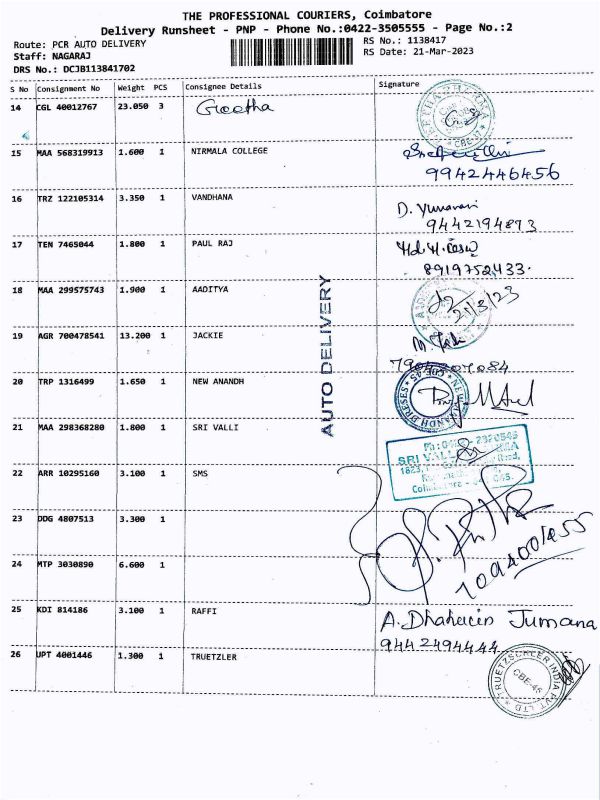 THE PROFESSIONAL COURIERS, Coimbatore
Delivery Runsheet - PNP - Phone No.:0422-3505555 - Page No.:2
Route: PCR AUTO DELIVERY
RS No.: 1138417
Staff: NAGARAJ
RS Date: 21-Mar-2023
DRS No.: DCJB113841702
S No Consignment No Weight PCS Consignee Details Signature
14 CGL 40012767 23.050 3 Geetha
15 MAA 568319913 1.600 1 NIRMALA COLLEGE
9942446456
16 TRZ 122105314 3.350 1 VANDHANA
D.
9442194873
17 TEN 7465044 1.800 1 PAUL RAJ
8919752433.
18 MAA 299575743 1.900 1 AADITYA
21/3/23
19 AGR 700478541 13.200 1 JACKIE
AUTO DELIVERY
20 TRP 1316499 1.650 1 NEW ANANDH
21 MAA 298368280 1.800 1 SRI VALLI
SRI VALLI
22 ARR 10295160 3.100 1 SMS
23 DDG 4807513 3.300 1
24 MTP 3030890 6.600 1
25 KDI 814186 3.100 1 RAFFI
A. Dhahacin Jumana
9442494444
26 UPT 4001446 1.300 1 TRUETZLER
TRUETZSCHLER INDIA PVT LTD
CBE-45